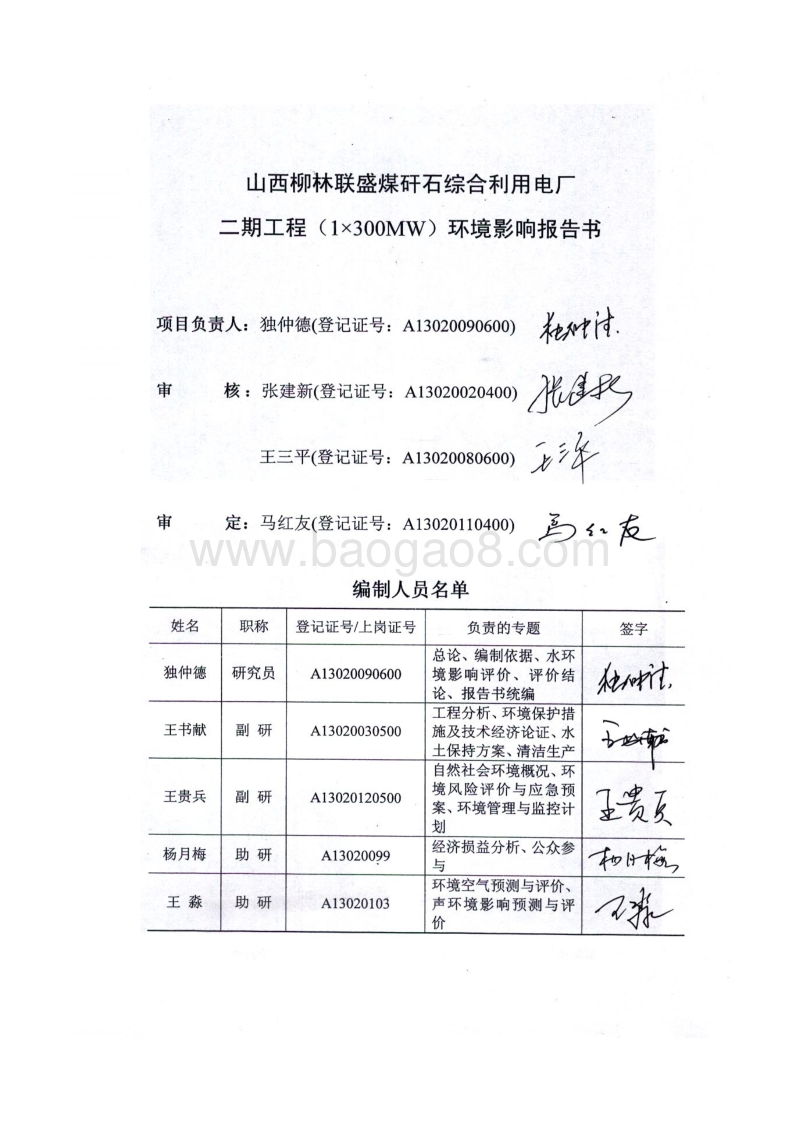 山西柳林联盛煤矸石综合利用电厂
二期工程（1×300MW）环境影响报告书
项目负责人：独仲德(登记证号：A13020090600) 独仲德
审 核：张建新(登记证号：A13020020400) 张建新
王三平(登记证号：A13020080600) 王三平
审 定：马红友(登记证号：A13020110400) 马红友
www.baogao8.com
编制人员名单
姓名 职称 登记证号/上岗证号 负责的专题 签字
总论、编制依据、水环
独仲德 研究员 A13020090600 境影响评价、评价结 独仲德
论、报告书统编
工程分析、环境保护措
王书献 副 研 A13020030500 施及技术经济论证、水 王书献
土保持方案、清洁生产
自然社会环境概况、环
王贵兵 副 研 A13020120500 境风险评价与应急预 王贵兵
案、环境管理与监控计
划
杨月梅 助 研 A13020099 经济损益分析、公众参 杨月梅
与
环境空气预测与评价、
王 淼 助 研 A13020103 声环境影响预测与评 王淼
价